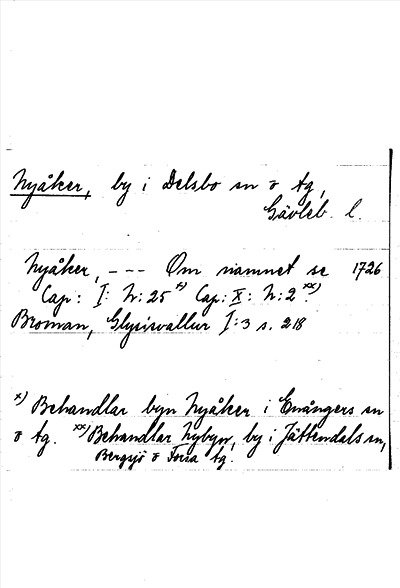 Nyåker, by i Delsbo sn o tg,
Gävleb. l.
Nyåker, --- Om namnet se 1726
Cap: I: N: 25 x) Cap: X: N: 2. xx)
Broman, Glysisvallur I:3 s. 218
x) Behandlar byn Nyåker i Enångers sn
o tg. xx) Behandlar Nybyn, by i Jättendals sn,
Bergsjö o Forsa tg.